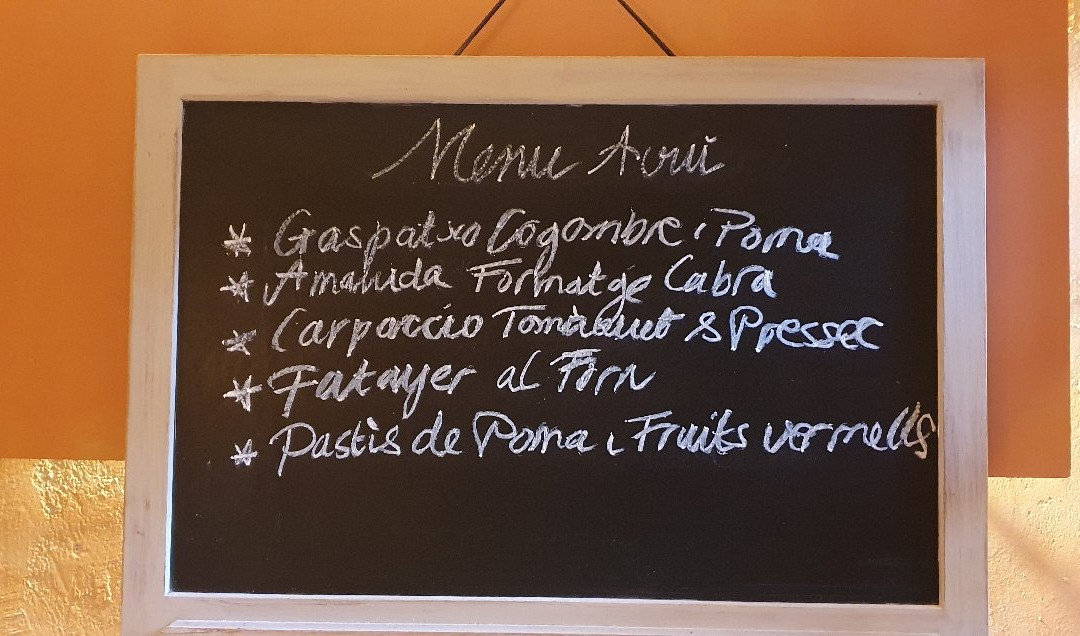 Menu Avui
* Gaspatxo Cogombre i Poma
* Amanida Formatge Cabra
* Carpaccio Tomàquet & Pressec
* Fatayer al Forn
* Pastìs de Poma i Fruits vermells